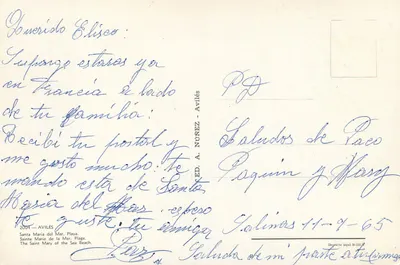 Querido Eliseo:
Supongo estaras ya
en Francia a lado
de tu familia:
Recibi tu postal y
me gusto mucho: te
mando esta de Santa
Maria del Mar espero
te guste: tu amiga
Paz
PD
Saludos de Paco
Paquin y Mary
Salinas 11-9-65
Saluda de mi parte a tu
ED. A. NUÑEZ - Avilés
AVILES
Santa Maria del Mar. Playa.
Sainte Marie de la Mer. Plage.
The Saint Mary of the Sea Beach.